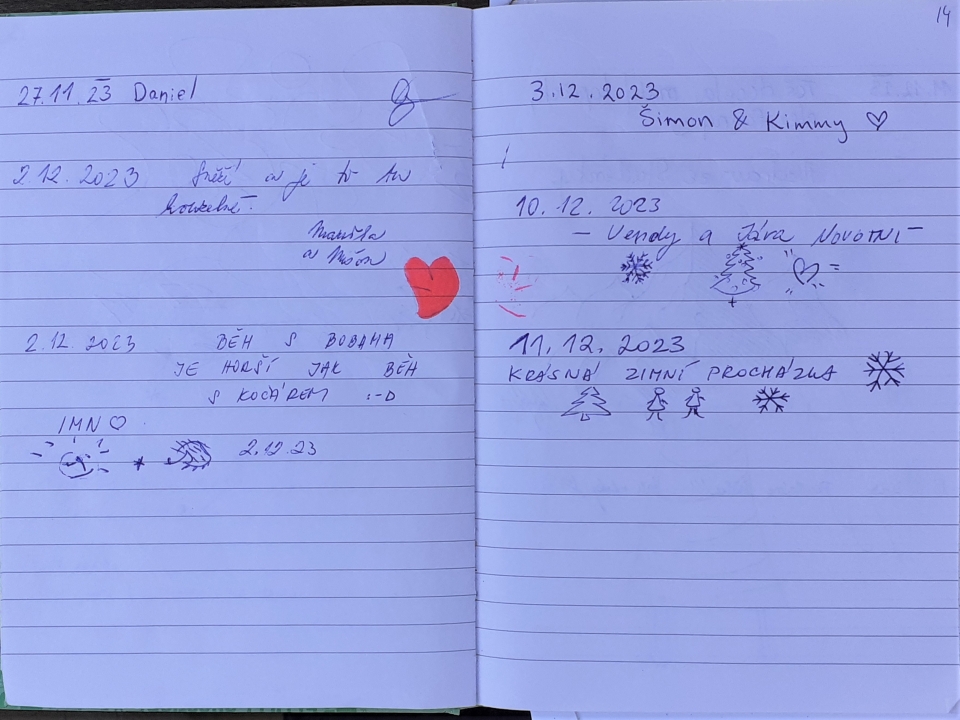 27.11.23 Daniel
2.12.2023 Sněží a je to tu
kouzelné.
a
2.12.2023 BĚH S BOBAMA
JE HORŠÍ JAK BĚH
S KOČÁREM :-D
IMN ♡
2.12.23
14
3.12.2023
Šimon & Kimmy ♡
10.12.2023
- Vendy a Jára NOVOTNÍ -
11.12.2023
KRÁSNÁ ZIMNÍ PROCHÁZKA